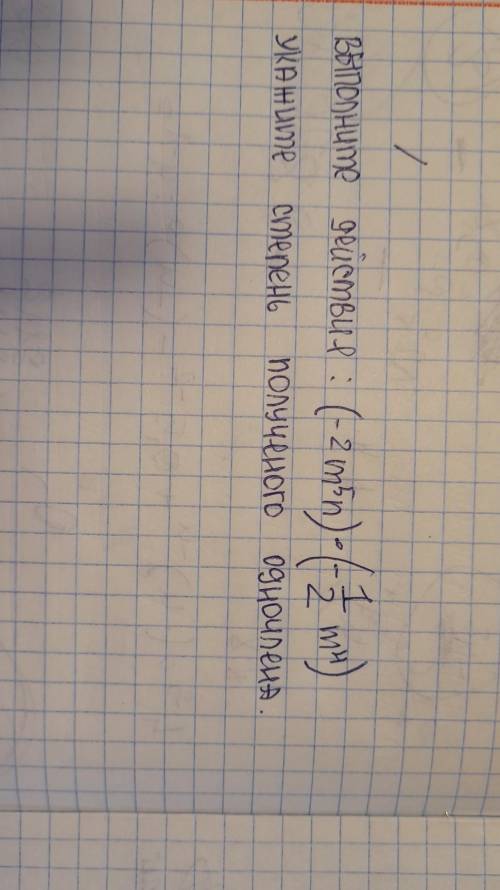 Выполните действия: (-2m⁵n)•(-1/2 m⁴)
укажите степень полученого одночлена.